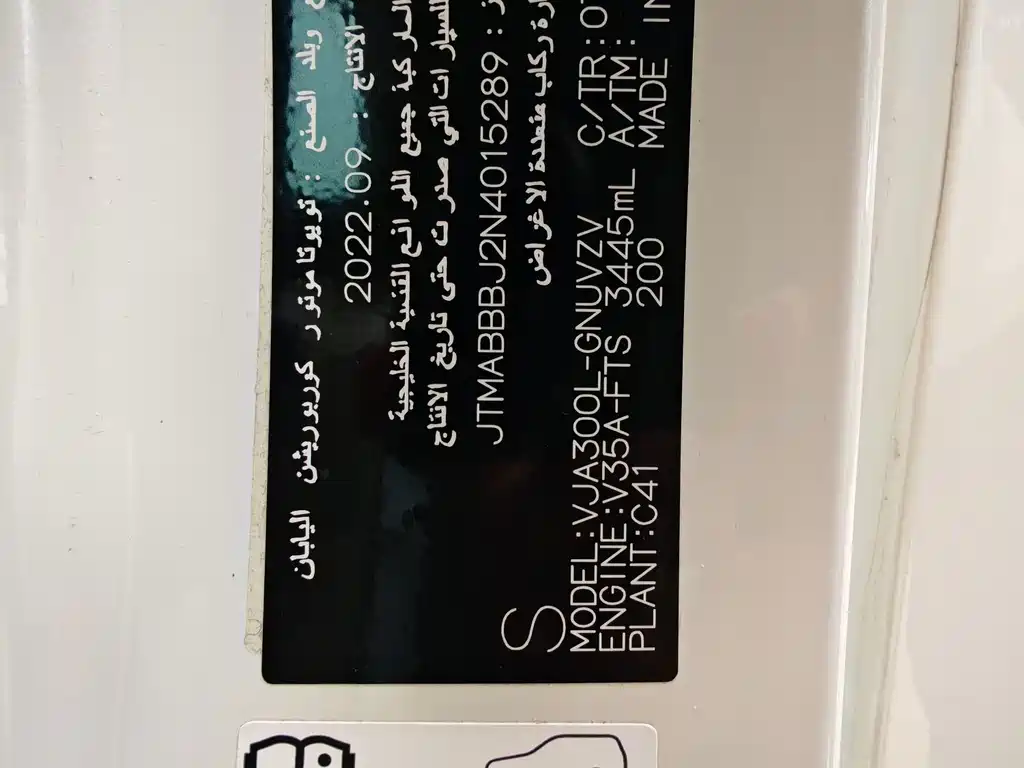 وبلد الصنع : تويوتا موتور كوربوريشن اليابان
الانتاج : 2022.09
المركبة جميع اللوائح القنية الخليجية
للسيارات التي صدرت حتى تاريخ الانتاج
: JTMABBBJ2N4015289
ركاب متعددة الاغراض
S
MODEL:VJA300L-GNUVZV C/TR:0
ENGINE:V35A-FTS 3445mL A/TM:
PLANT:C41 200 MADE IN